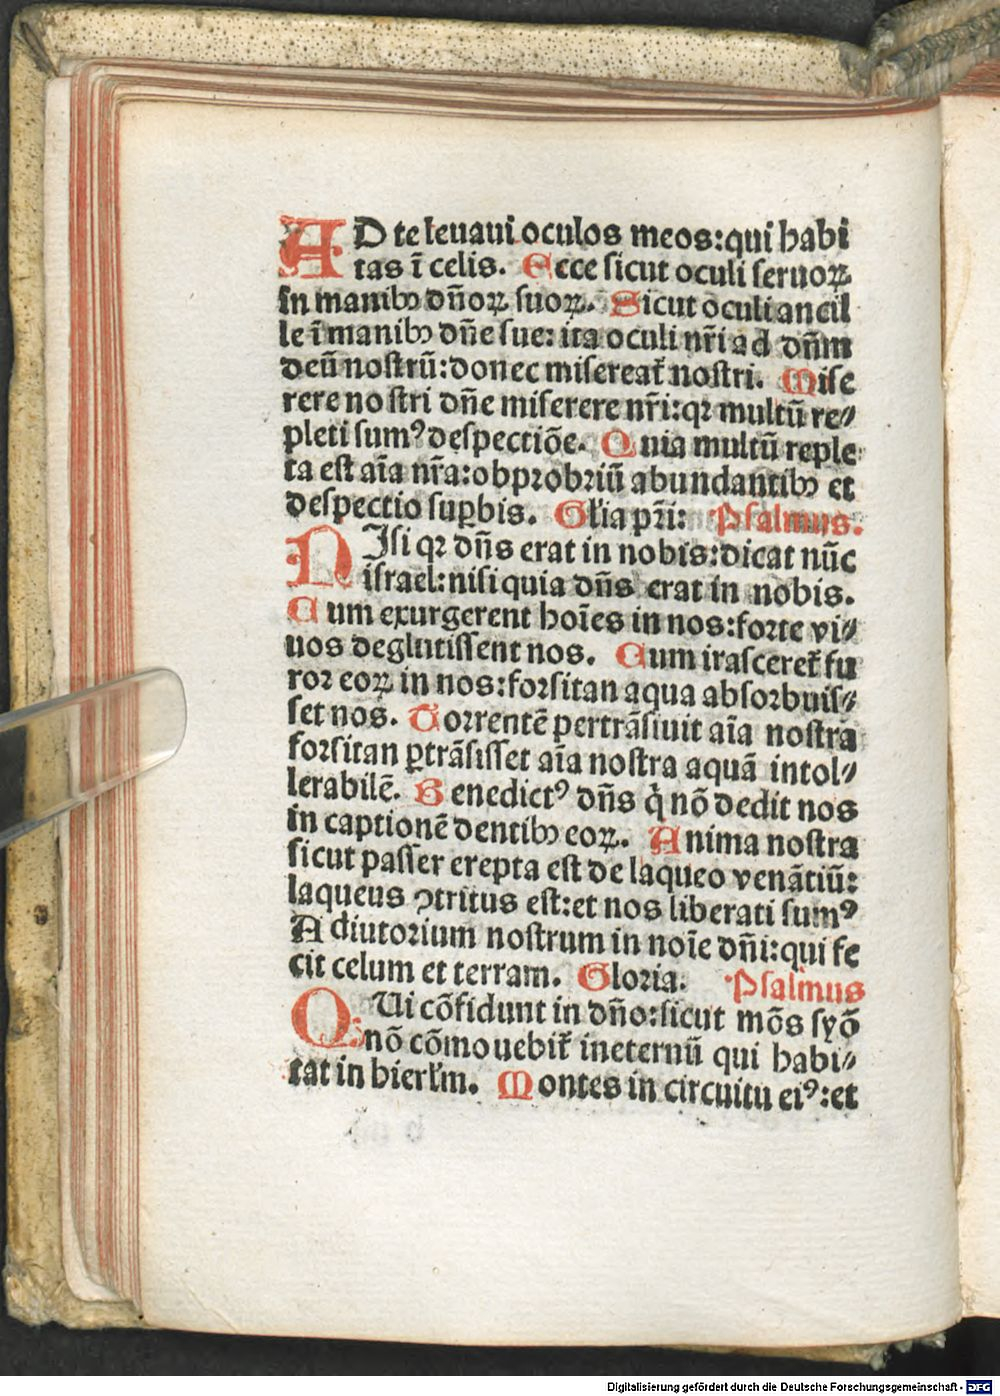 AD te leuaui oculos meos:qui habi
tas ī celis. Ecce sicut oculi seruoꝝ
In manibꝰ dn̄oꝝ suoꝝ. Sicut oculi ancil
le ī manibꝰ dn̄e sue: ita oculi nr̄i ad dn̄m
deū nostrū:donec misereat̄ nostri. Mise
rere nostri dn̄e miserere nr̄i:qꝛ multū re⸗
pleti sumꝰ despectiōe. Quia multū reple
ta est aīa nr̄a:obprobriū abundantibꝰ et
despectio suꝑbis. Gl'ia pr̄i: Psalmus.
NIsi qꝛ dn̄s erat in nobis:dicat nūc
israel:nisi quia dn̄s erat in nobis.
Cum exurgerent hoīes in nos:forte vi⸗
uos deglutissent nos. Cum irasceret̄ fu
ror eoꝝ in nos:forsitan aqua absorbuis⸗
set nos. Torrentē pertrāsiuit aīa nostra
forsitan ꝑtrāsisset aīa nostra aquā intol⸗
lerabilē. Benedictꝰ dn̄s q̇ nō dedit nos
in captionē dentibꝰ eoꝝ. Anima nostra
sicut passer erepta est de laqueo venātiū:
laqueus ↄtritus est:et nos liberati sumꝰ
Adiutorium nostrum in noīe dn̄i:qui fe
cit celum et terram. Gloria. Psalmus
QUi cōfidunt in dn̄o:sicut mōs syō
nō cōmouebit̄ ineternū qui habi⸗
tat in hierl'm. Montes in circuitu eiꝰ:et
Digitalisierung gefördert durch die Deutsche Forschungsgemeinschaft - DFG